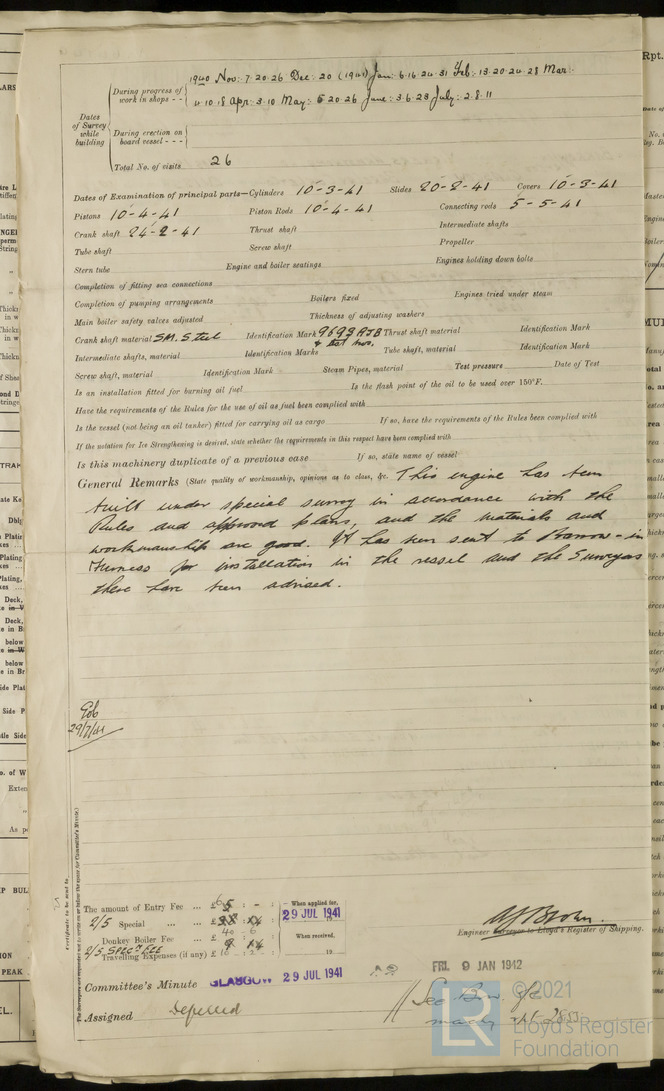 1940 Nov: 7.20.26 Dec: 20 (1941) Jan: 6.16.24.31 Feb: 13.20.24.28 Mar:
During progress of work in shops - -
4.10.18 Apr: 3.10 May: 5 20.26 June: 3.6.23 July: 2.8.11
Dates of Survey while building
During erection on board vessel - - -
Total No. of visits 26
Dates of Examination of principal parts—Cylinders 10-3-41 Slides 20-2-41 Covers 10-3-41
Pistons 10-4-41 Piston Rods 10-4-41 Connecting rods 5-5-41
Crank shaft 24-2-41 Thrust shaft Intermediate shafts
Tube shaft Screw shaft Propeller
Stern tube Engine and boiler seatings Engines holding down bolts
Completion of fitting sea connections
Completion of pumping arrangements Boilers fixed Engines tried under steam
Main boiler safety valves adjusted Thickness of adjusting washers
Crank shaft material SM. Steel Identification Mark 9693 AJB Thrust shaft material Identification Mark
& test nos.
Intermediate shafts, material Identification Marks Tube shaft, material Identification Mark
Screw shaft, material Identification Mark Steam Pipes, material Test pressure Date of Test
Is an installation fitted for burning oil fuel Is the flash point of the oil to be used over 150°F.
Have the requirements of the Rules for the use of oil as fuel been complied with
Is the vessel (not being an oil tanker) fitted for carrying oil as cargo If so, have the requirements of the Rules been complied with
If the notation for Ice Strengthening is desired, state whether the requirements in this respect have been complied with
Is this machinery duplicate of a previous case If so, state name of vessel
General Remarks (State quality of workmanship, opinions as to class, &c. This engine has been
built under special survey in accordance with the
Rules and approved plans, and the materials and
workmanship are good. It has been sent to Barrow-in
Furness for installation in the vessel and the Surveyors
there have been advised.
29/7/41
Certificate to be sent to
The amount of Entry Fee ... £
When applied for,
2/5 Special ... ... £
29 JUL 1941
Donkey Boiler Fee ... £
When received,
2/5 SPEC FEE
Travelling Expenses (if any) £
19
AJ Brown.
Engineer Surveyor to Lloyd's Register of Shipping.
Committee's Minute GLASGOW 29 JUL 1941
FRI. 9 JAN 1942
Assigned Deferred
See
©2021
Lloyd's Register
Foundation